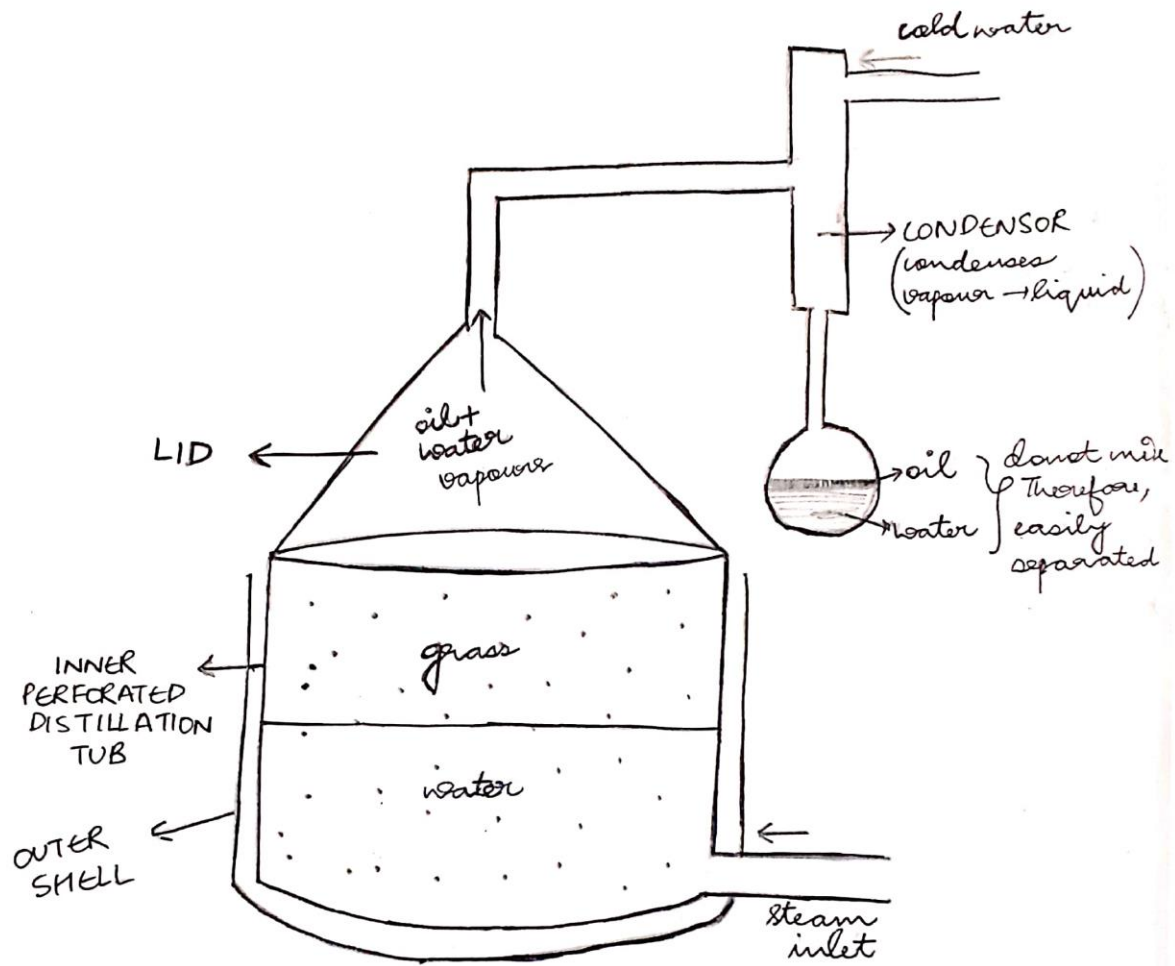 cold water
CONDENSOR
(condenses
vapour → liquid)
oil +
water
vapours
LID
oil
water
do not mix
Therefore,
easily
separated
grass
INNER
PERFORATED
DISTILLATION
TUB
water
OUTER
SHELL
steam
inlet